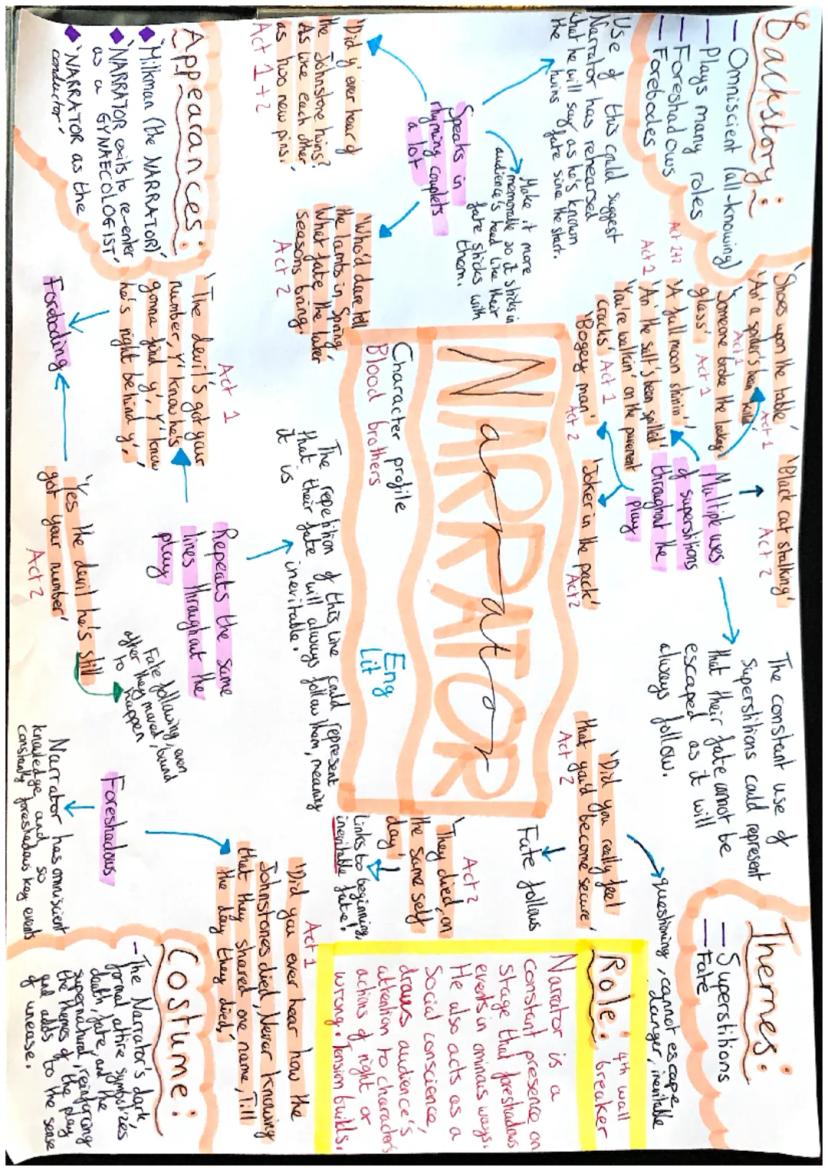 Backstory:
— Omniscient (all-knowing)
— Plays many roles
— Foreshadows
— Forebodes
Use of this could suggest
Narrator has rehearsed
what he will say as he's known
the twins fate since the start.
Speaks in
rhyming couplets
a lot
Make it more
memorable so it sticks in
audience's head like their
fate sticks with
them.
'Did y' ever hear of
the Johnstone twins?
As like each other
as two new pins.'
Act 1 + 2
'Who'd dare tell
the lambs in Spring,
What fate the later
seasons bring.'
Act 2
Appearances:
Milkman (the NARRATOR)'
'NARRATOR exits to re-enter
as a GYNAECOLOGIST'
'NARRATOR as the
conductor,'
'Shoes upon the table'
Act 1
'An' a spider's been killed'
Act 1
'Someone broke the lookin'
glass' Act 1
'A full moon shinin'
Act 1+2
'An' the salt's been spilled'
Act 1
'You're walkin' on the pavement
cracks' Act 1
'Bogey man'
Act 2
'Black cat stalking'
Act 2
Multiple uses
of superstitions
throughout the
play
'Joker in the pack'
Act 2
The constant use of
Superstitions could represent
that their fate cannot be
escaped as it will
always follow.
Themes:
— Superstitions
— Fate
NARRATOR
Narrator
Character profile
Blood brothers
Eng
Lit
'Did you really feel
that you'd become secure'
Act 2
questioning, cannot escape
danger, inevitable
Fate follows
'They died, on
the same self
day'
Act 2
Links to beginning,
inevitable fate!
Role: 4th wall
breaker
Narrator is a
constant presence on
stage that foreshadows
events in ominous ways.
He also acts as a
Social conscience,
draws audience's
attention to characters
actions of right or
wrong. Tension builds.
The repetition of this line could represent
that their fate will always follow them, meaning
it is inevitable.
Repeats the same
lines throughout the
play
Act 1
'The devil's got your
number, Y' know he's
gonna find y', Y' know
he's right behind y','
Foreboding
'Yes the devil he's still
got your number'
Act 2
Fate following, even
after they moved, bound
to happen
Foreshadows
Narrator has omniscient
knowledge and so
constantly foreshadows key events
Act 1
'Did you ever hear how the
Johnstones died, Never knowing
that they shared one name, Till
the day they died,'
Costume:
- The Narrator's dark,
formal attire symbolizes
death, fate, and the
supernatural, reinforcing
the themes of the play
and adds to the sense
of unease.